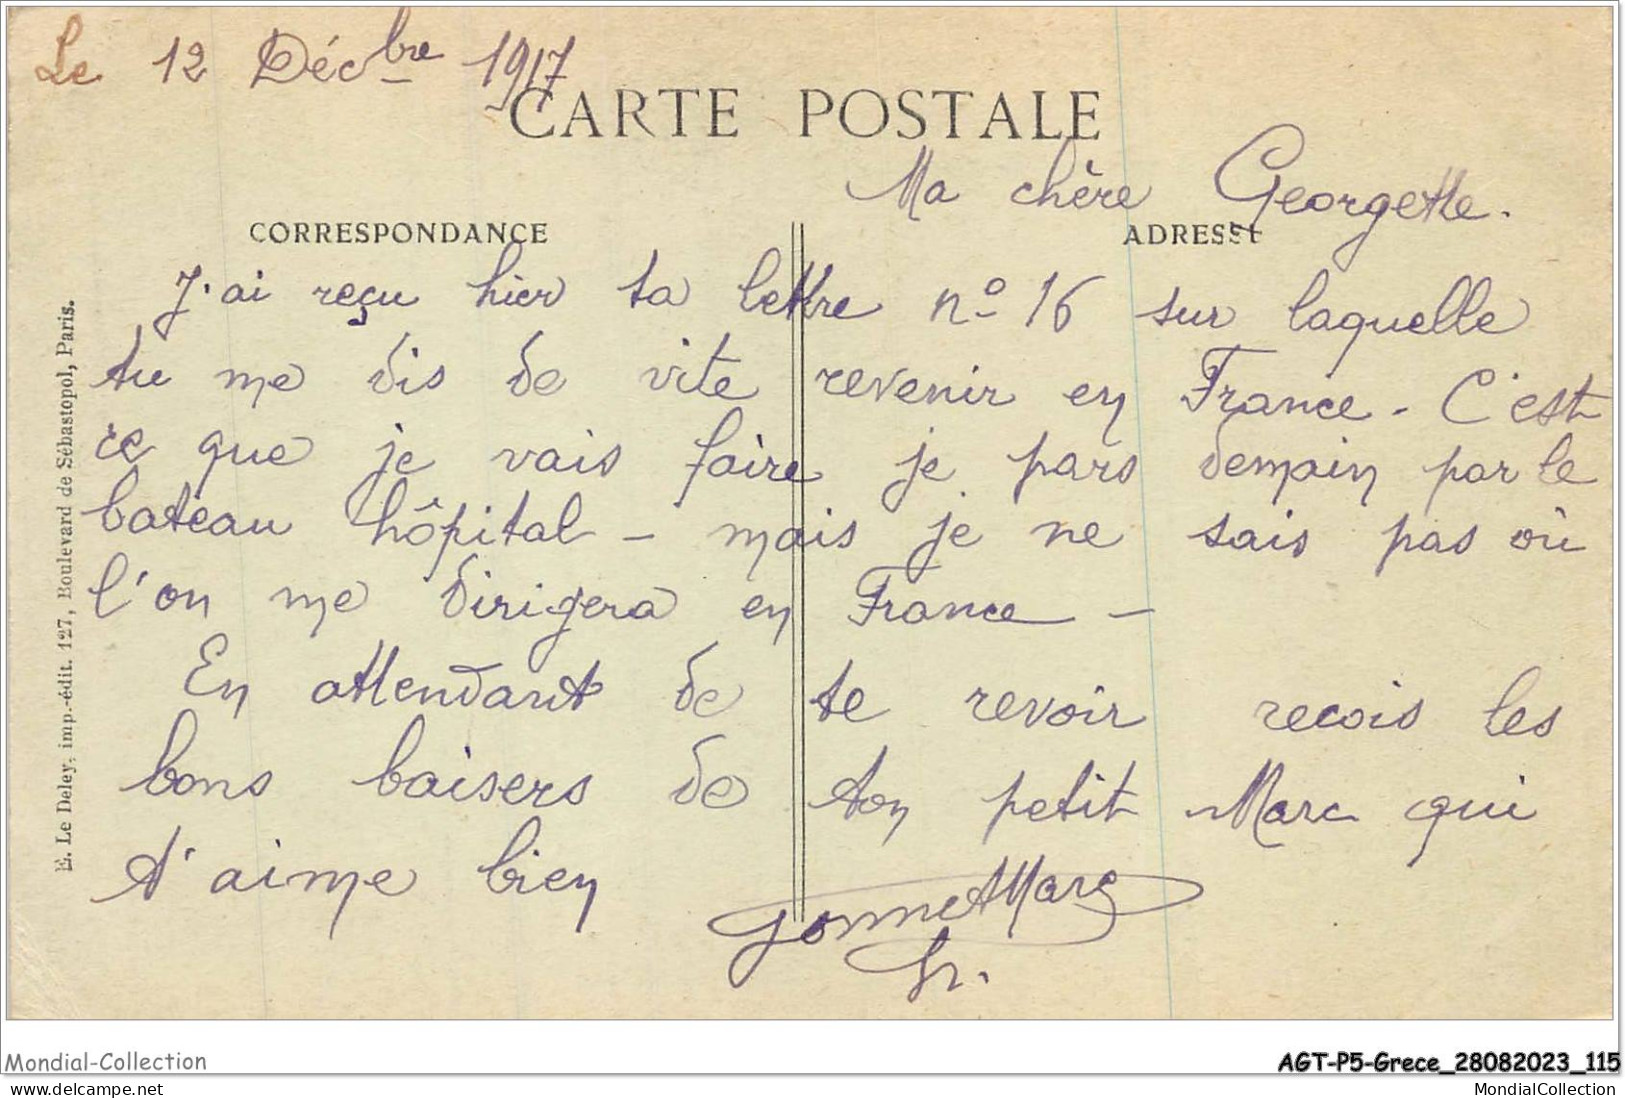 Le 12 Décbre 1917
CARTE POSTALE
Ma chère Georgette.
CORRESPONDANCE
ADRESSE
J'ai reçu hier ta lettre nº 16 sur laquelle
tu me dis de vite revenir en France - C'est
ce que je vais faire je pars demain par le
bateau hôpital - mais je ne sais pas où
l'on me dirigera en France -
En attendant de te revoir recois les
bons baisers de ton petit Marc qui
t'aime bien
E. Le Deley, imp.-édit. 127, Boulevard de Sébastopol, Paris.
Mondial-Collection
AGT-P5-Grece_28082023_115
www.delcampe.net
MondialCollection